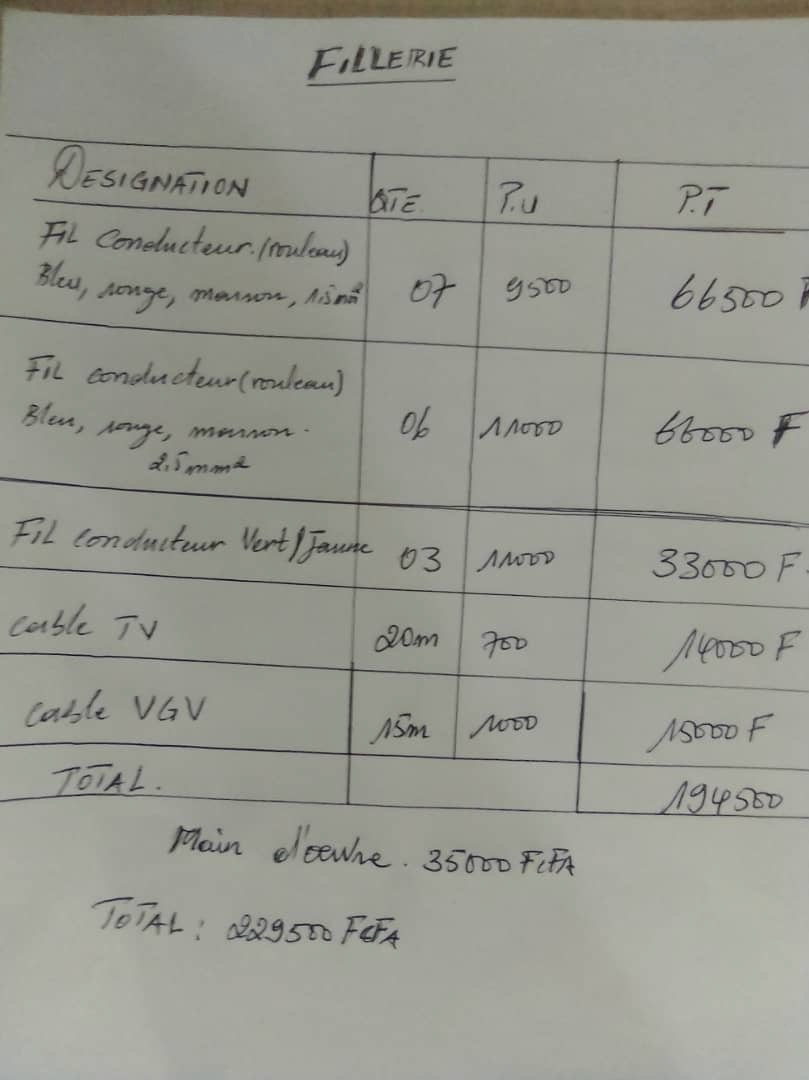 FILLERIE
DESIGNATION QTE. P.U P.T
Fil Conducteur.(rouleau)
Bleu, rouge, marron, 1,5mm² 07 9500 66500 F
Fil conducteur(rouleau)
Bleu, rouge, marron. 06 11000 66000 F
2,5mm²
Fil conducteur Vert/Jaune 03 11000 33000 F
cable TV 20m 700 14000 F
cable VGV 15m 1000 15000 F
TOTAL. 194500
Main d'oeuvre. 35000 FCFA
TOTAL : 229500 FCFA